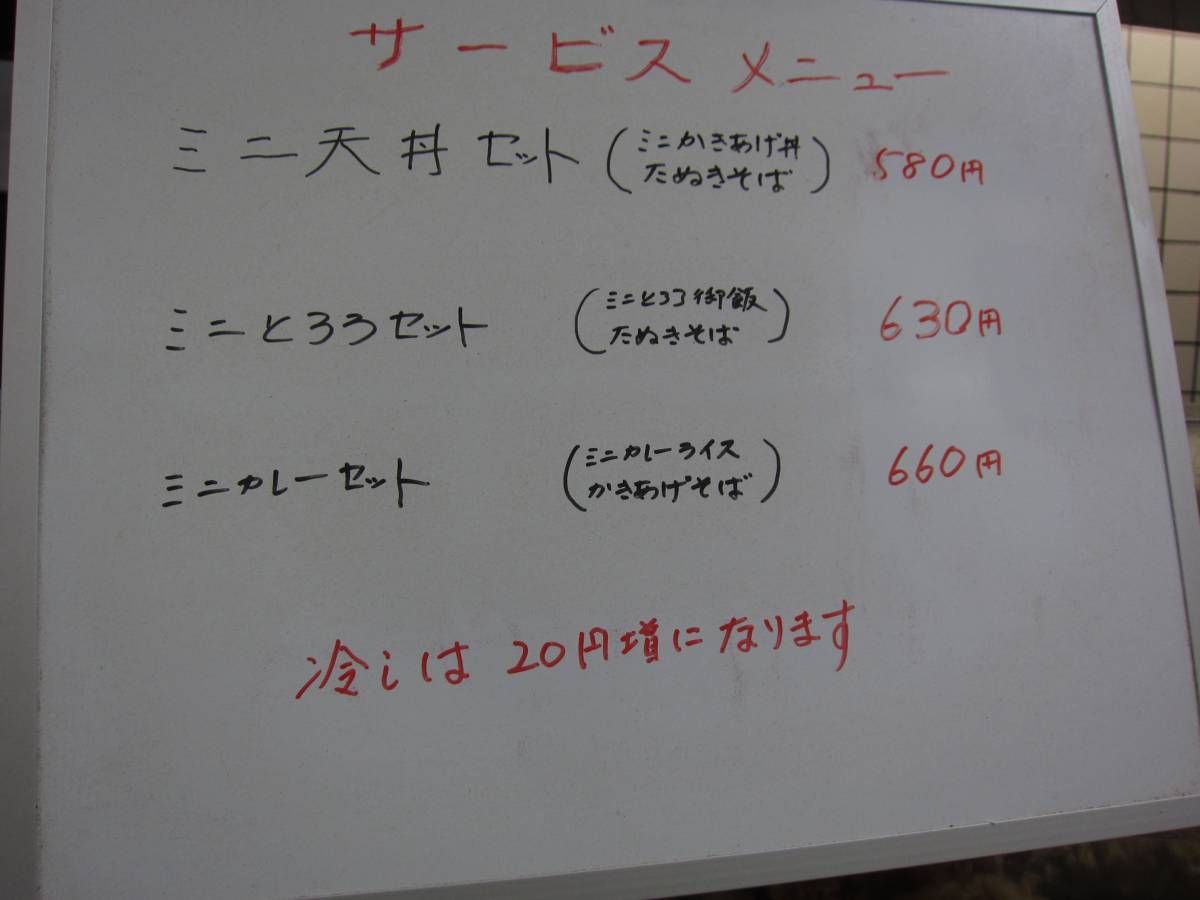 サービスメニュー
ミニ天丼セット（ミニかきあげ丼 たぬきそば）580円
ミニとろろセット（ミニとろろ御飯 たぬきそば）630円
ミニカレーセット（ミニカレーライス かきあげそば）660円
冷しは20円増になります